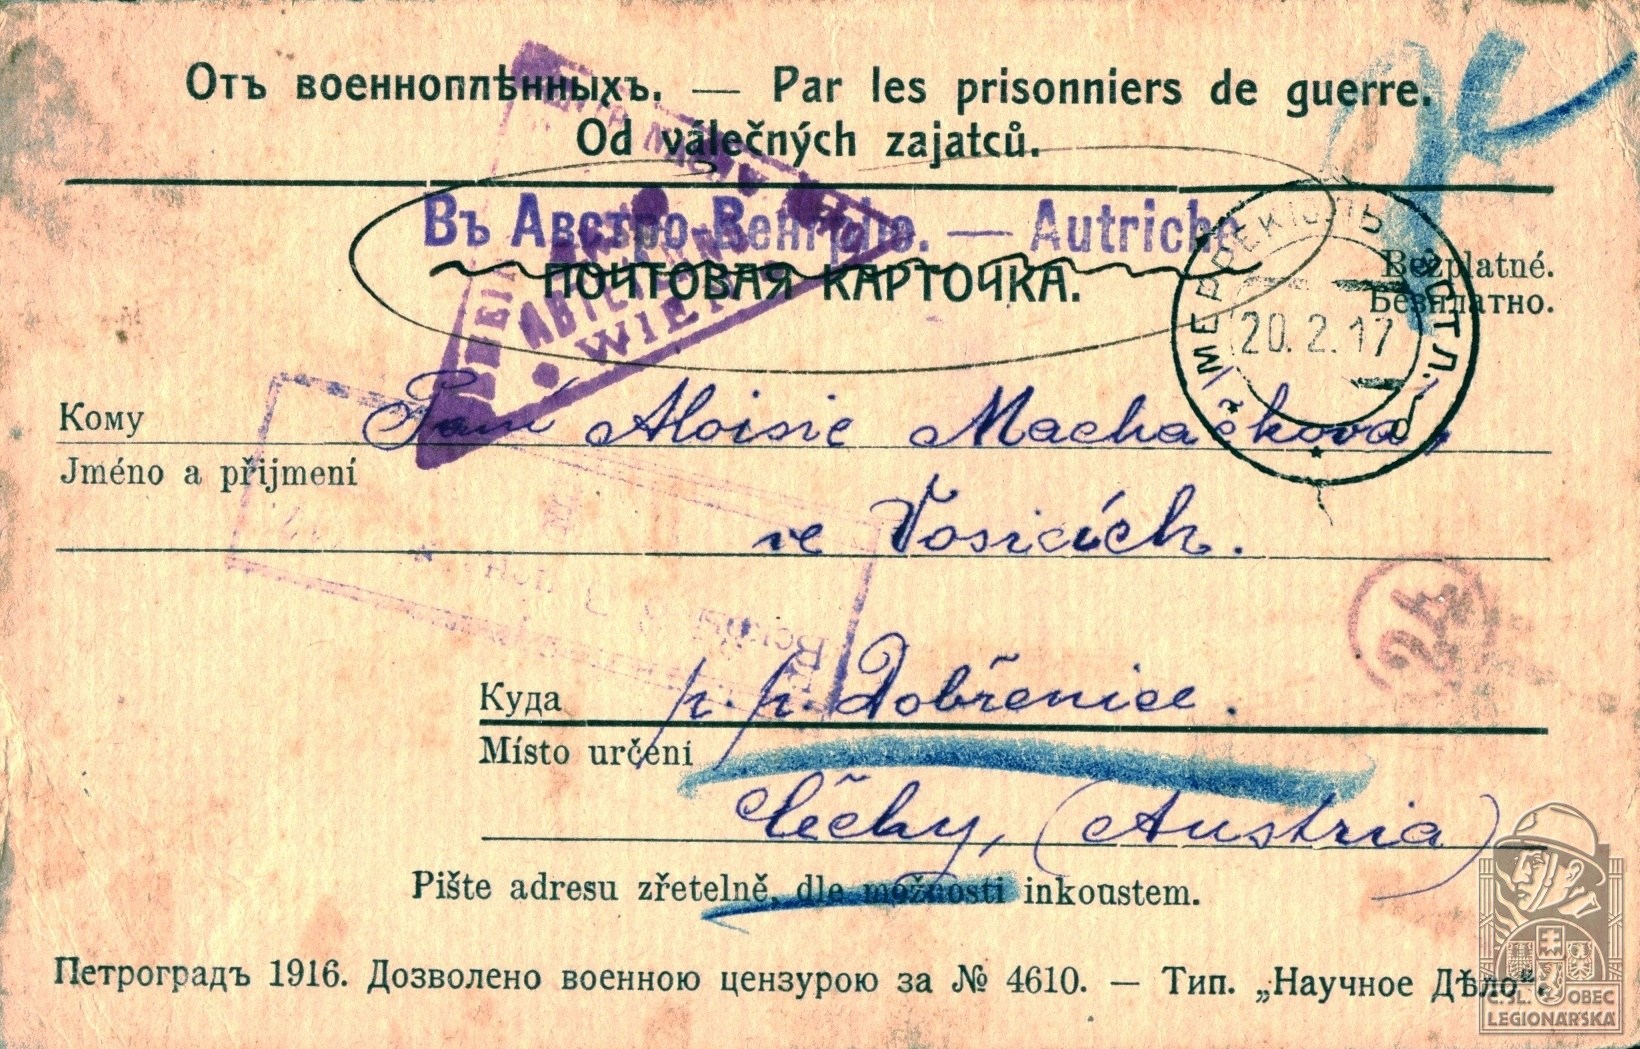 Отъ военноплѣнныхъ. — Par les prisonniers de guerre.
Od válečných zajatců.
Въ Австро-Венгрію. — Autriche
ПОЧТОВАЯ КАРТОЧКА.
Bezplatné.
Безплатно.
20. 2. 17
WIEN
Кому Paní Aloisie Machačková,
Jméno a příjmení
ve Vosicích.
24
Куда p. p. Dobřenice.
Místo určení
Čechy, (Austria)
Pište adresu zřetelně, dle možnosti inkoustem.
Петроградъ 1916. Дозволено военною цензурою за № 4610. — Тип. „Научное Дѣло“.
Č.SL. OBEC
LEGIONÁŘSKÁ